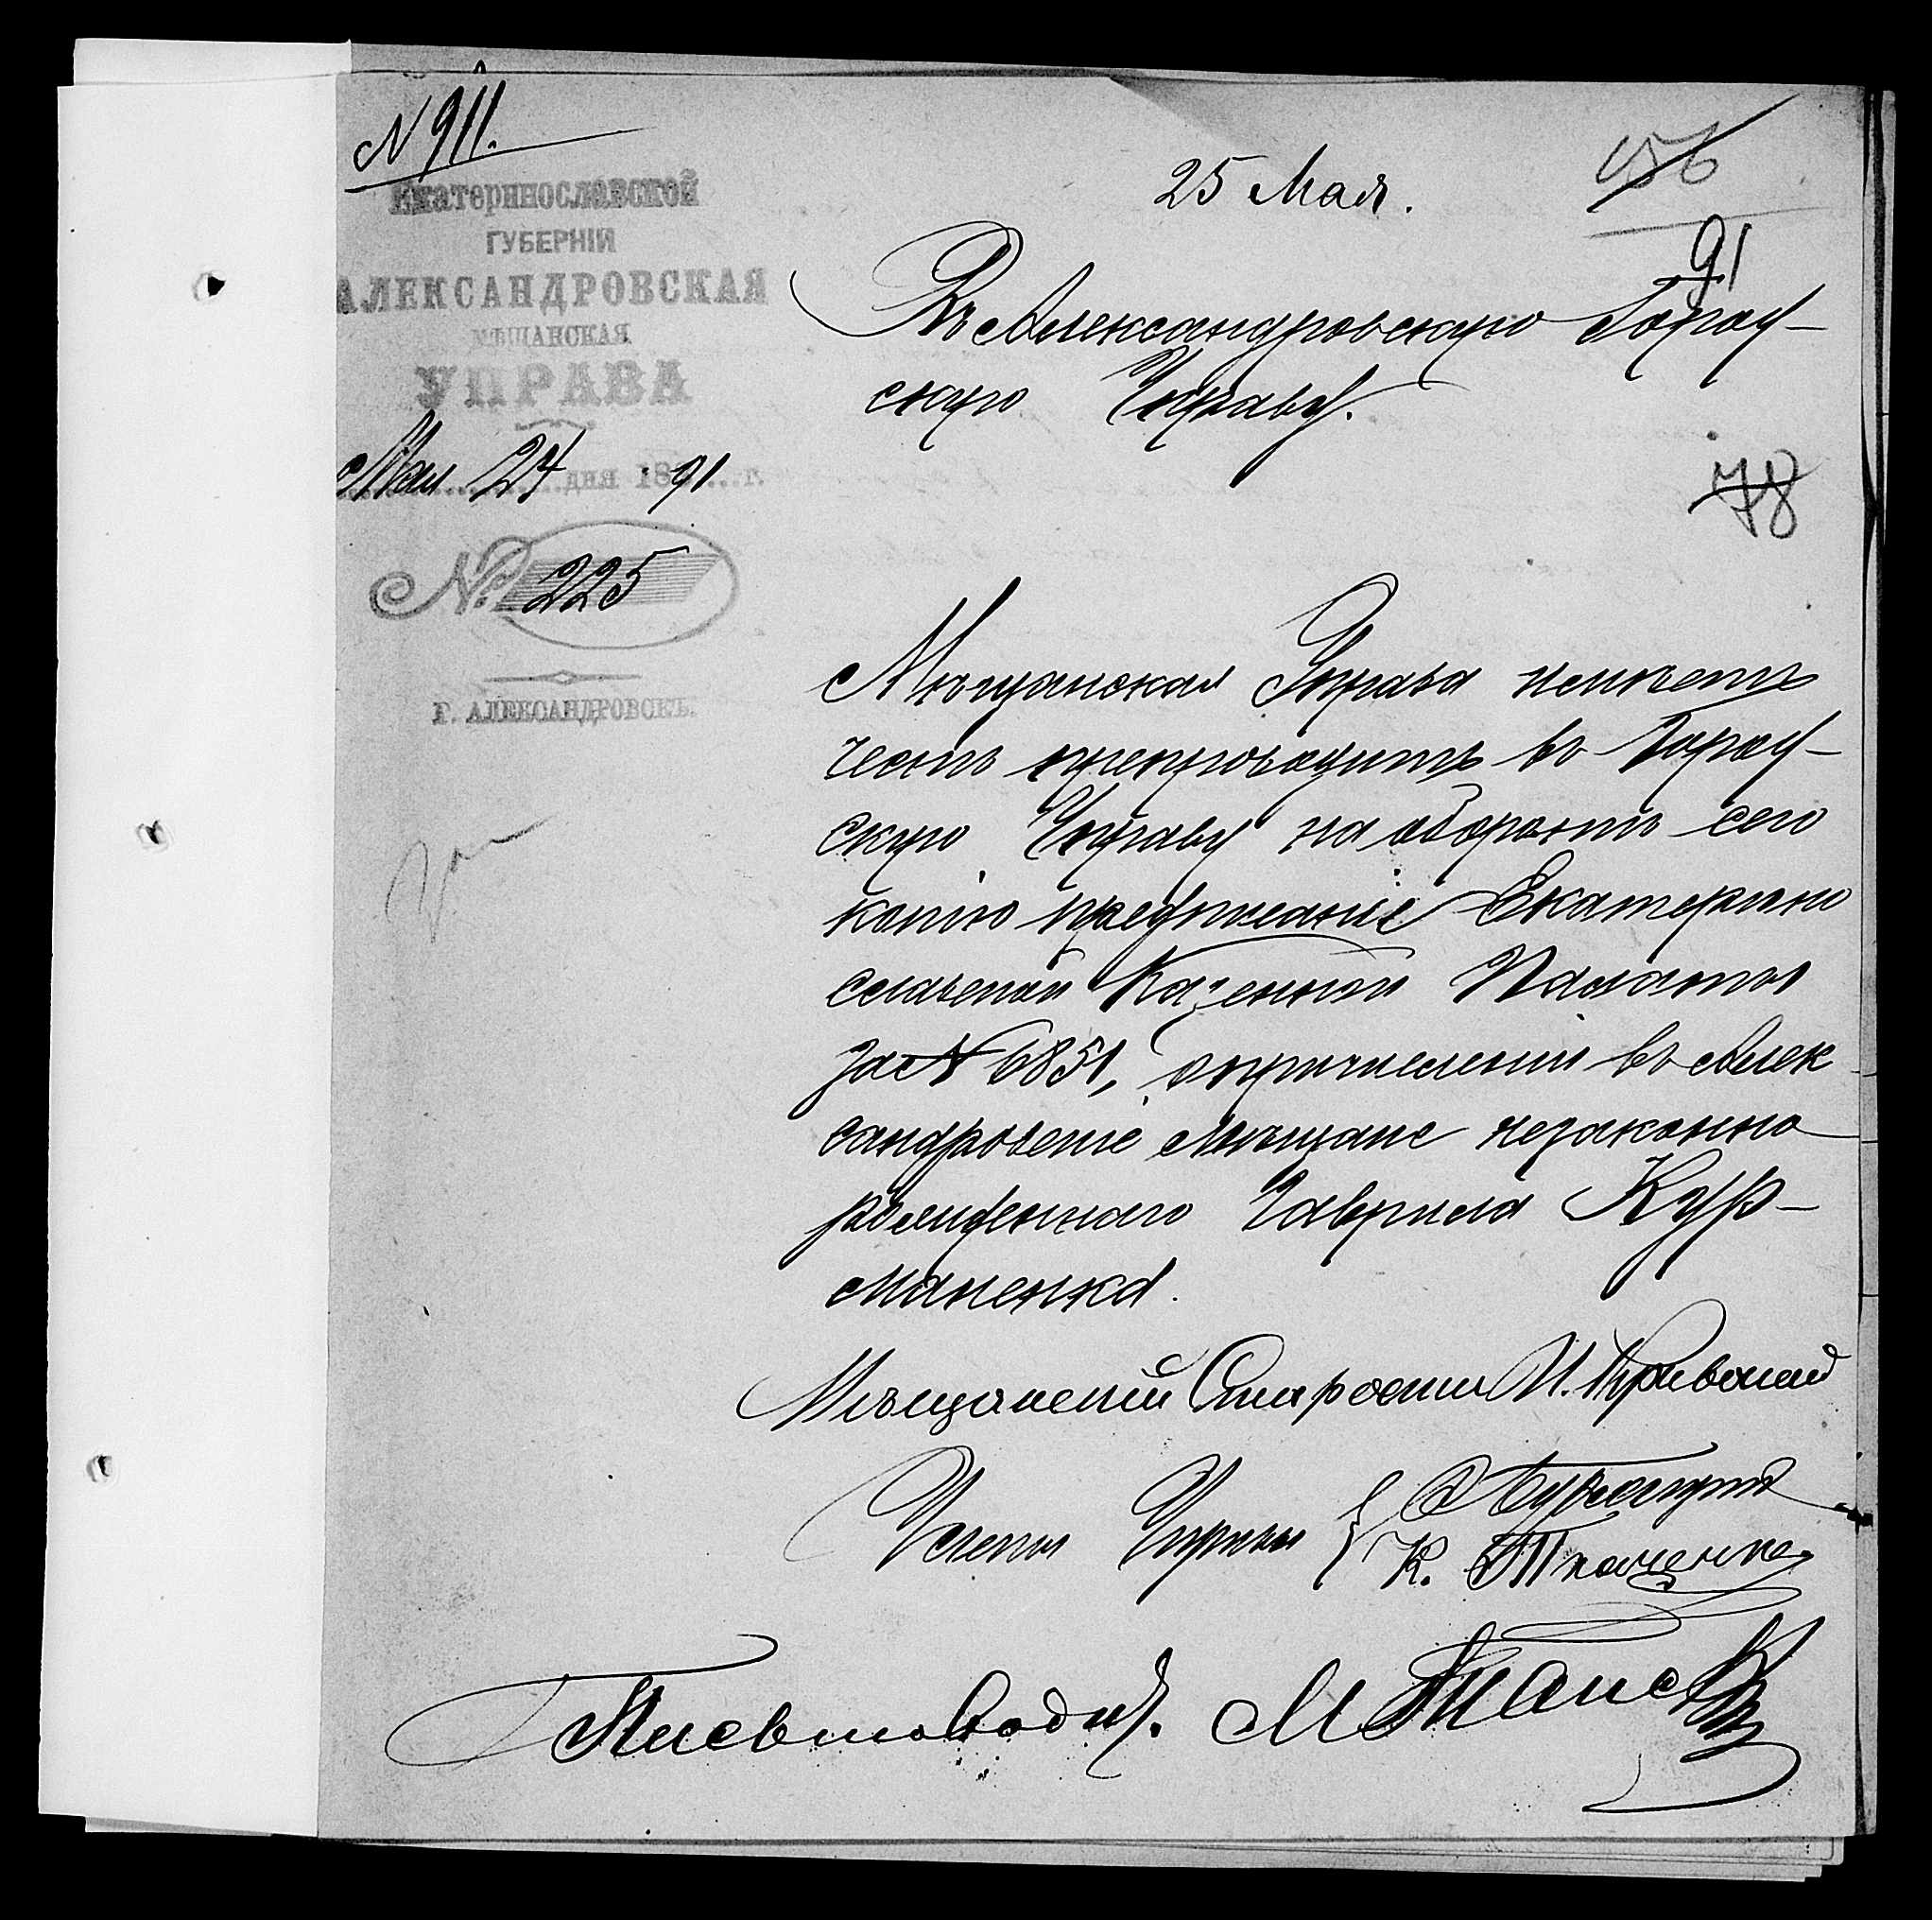 N 911.
Екатеринославской
ГУБЕРНІИ
АЛЕКСАНДРОВСКАЯ
МѢЩАНСКАЯ
УПРАВА
Мая 24 дня 1891 г.
№ 225
Г. АЛЕКСАНДРОВСКЪ.
25 Мая.
156
91
Въ Александровскую Город-
скую Управу.
78
Мѣщанская Управа имѣетъ
честь препроводить въ Город-
скую Управу на оборотѣ сего
копію предписанія Екатерино
славской Казенной Палаты
за N 6851, о причисленіи въ Алек
сандровскіе мѣщане незаконно
рожденнаго Гавріила Кур-
маненка.
Мѣщанскій Староста И.
Члены Управы
К. Ткаченко
Письмоводит. М.